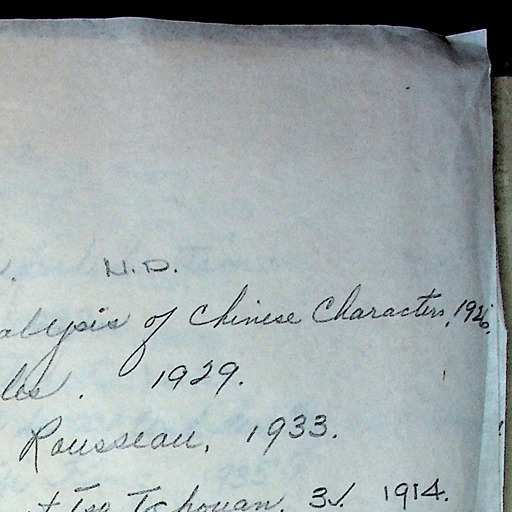 N.D.
alysis of Chinese Characters, 1926.
les. 1929.
Rousseau, 1933.
t Tso Tchouan. 3v. 1914.